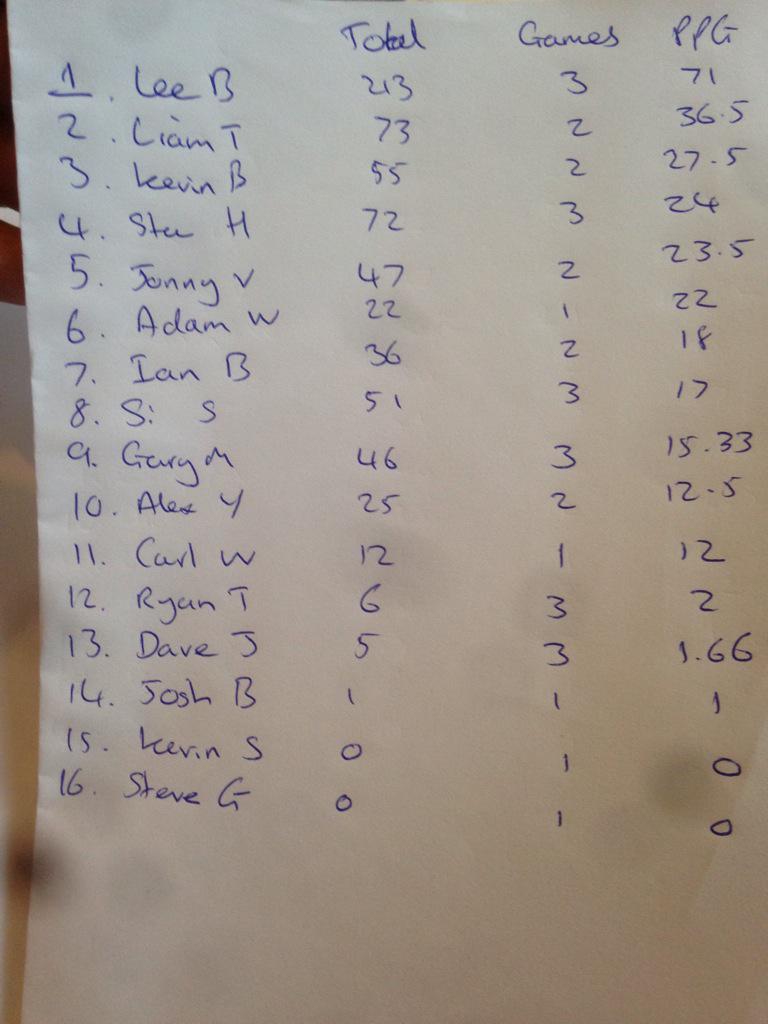 Total Games PPG
1. Lee B 213 3 71
2. Liam T 73 2 36.5
3. Kevin B 55 2 27.5
4. Ste H 72 3 24
5. Jonny V 47 2 23.5
6. Adam W 22 1 22
7. Ian B 36 2 18
8. Si S 51 3 17
9. Gary M 46 3 15.33
10. Alex Y 25 2 12.5
11. Carl W 12 1 12
12. Ryan T 6 3 2
13. Dave J 5 3 1.66
14. Josh B 1 1 1
15. Kevin S 0 1 0
16. Steve G 0 1 0